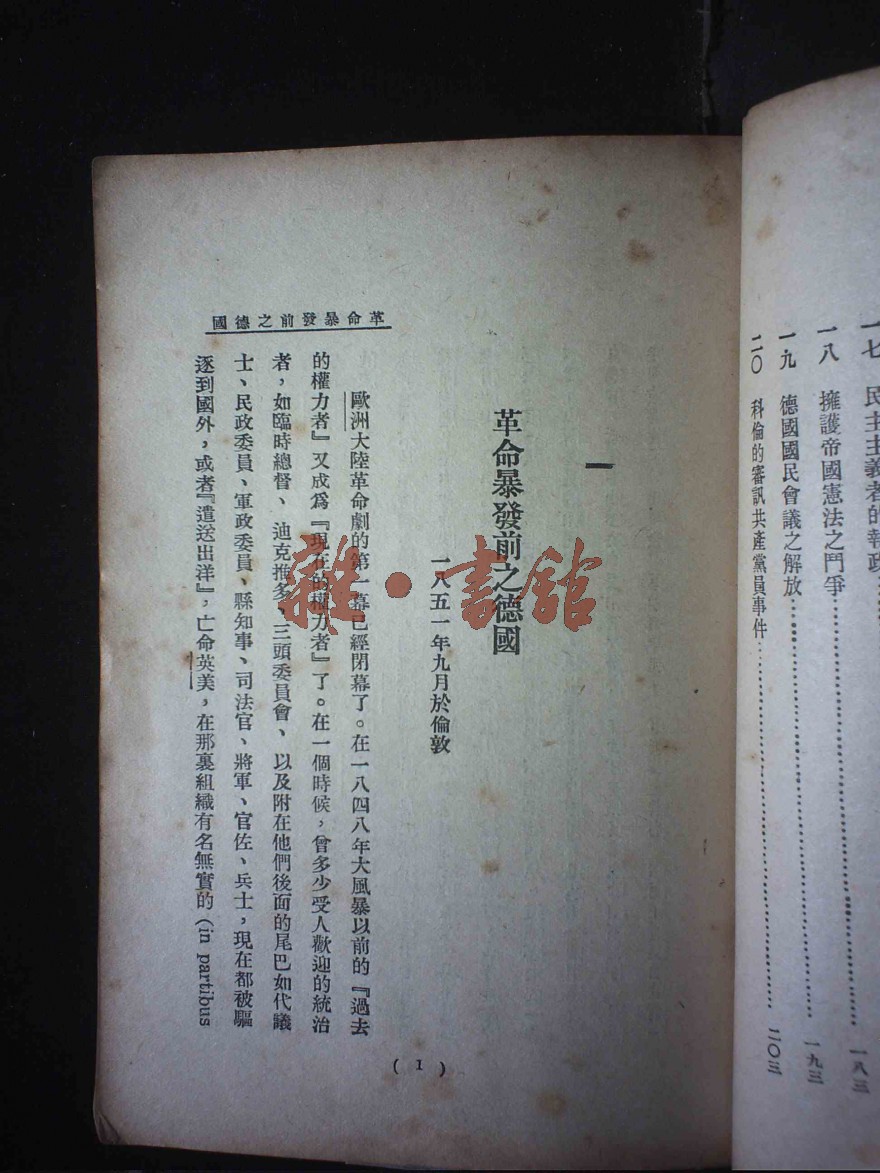 一七 民主主義者的執政………一八三
一八 擁護帝國憲法之鬥爭………一八三
一九 德國國民會議之解放………一九三
二〇 科倫的審訊共產黨員事件………二〇三
革命暴發前之德國
一
革命暴發前之德國
一八五一年九月於倫敦
歐洲大陸革命劇的第一幕已經閉幕了。在一八四八年大風暴以前的『過去
的權力者』又成爲『現在的權力者』了。在一個時候，曾多少受人歡迎的統治
者，如臨時總督、迪克推多、三頭委員會、以及附在他們後面的尾巴如代議
士、民政委員、軍政委員、縣知事、司法官、將軍、官佐、兵士，現在都被驅
逐到國外，或者『遣送出洋』，亡命英美，在那裏組織有名無實的（in partibus
( 1 )
雜·書館